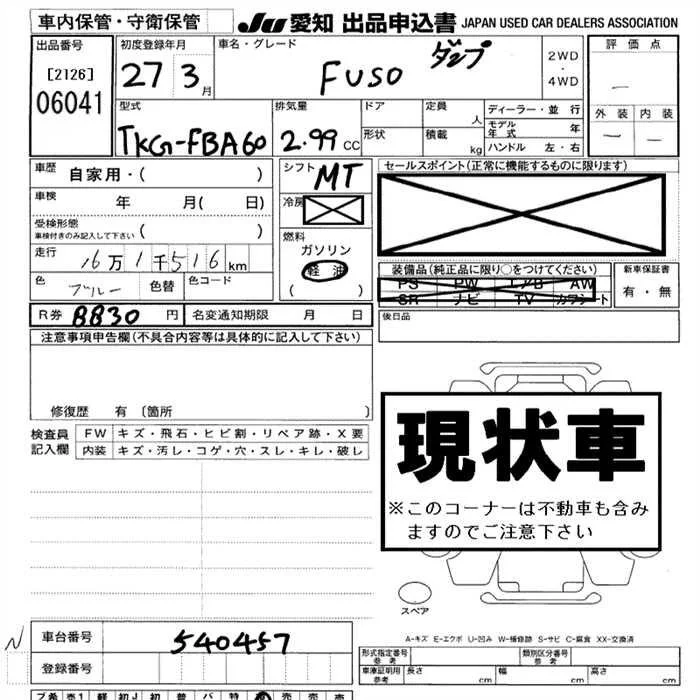 車内保管・守衛保管 JU 愛知 出品申込書 JAPAN USED CAR DEALERS ASSOCIATION
出品番号 初度登録年月 車名・グレード 評価点
[2126] 27 3月 FUSO ダンプ 2WD・4WD
06041 外装 内装
型式 排気量 ドア 定員 人 ディーラー・並行
モデル年式 年
TKG-FBA60 2.99 CC 形状 積載 kg ハンドル 左・右
車歴 自家用・( ) シフト MT セールスポイント(正常に機能するものに限ります)
車検 年 月( 日) 冷房
受検形態
車検付きのみ記入して下さい ( ) 燃料
ガソリン
走行 16万1千516km 軽油 装備品(純正品に限り○をつけてください) 新車保証書
色 ブルー 色替 色コード ( ) PS PW エアB AW 有・無
SR ナビ TV カワシート
R券 8830 円 名変通知期限 月 日 後日品
注意事項申告欄(不具合内容等は具体的に記入して下さい)
修復歴 有 〔箇所 〕
現状車
※このコーナーは不動車も含みますのでご注意下さい
検査員記入欄 FW キズ・飛石・ヒビ割・リペア跡・X要
内装 キズ・汚レ・コゲ・穴・スレ・キレ・破レ
スペア
A-キズ E-エクボ U-凹み W-補修跡 S-サビ C-腐食 XX-交換済
N 車台番号 540457 形式指定番号 参考 類別区分番号 参考
登録番号 車庫証明用 参考 長さ cm 幅 cm 高さ cm